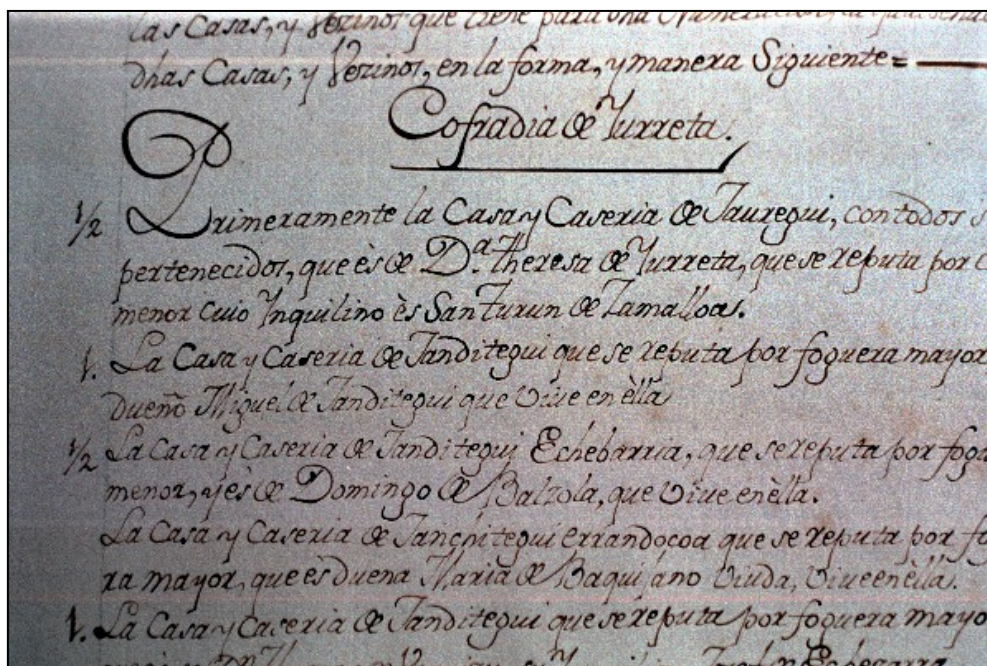 las Casas, y Vezinos que tiene para una Numeracion, la qual
dhas Casas, y Vezinos, en la forma, y manera Siguiente=
Cofradia de Yurreta.
1/2 Primeramente la Casa y Caseria de Jauregui, con todos
pertenecidos, que ès de D.ª Theresa de Yurreta, que se reputa por
menor cuio Ynquilino ès San Turun de Zamalloa.
1. La Casa y Caseria de Janditegui que se reputa por foguera mayor
dueño Miguel de Janditegui que Vive en èlla
1/2 La Casa y Caseria de Janditegui Echebarria, que se reputa por fogu
menor, y ès de Domingo de Balzola, que Vive en èlla.
La Casa y Caseria de Janditegui errandocoa que se reputa por fo
ra mayor, que ès duena Maria de Baquijano Viuda, Vive en èlla.
1. La Casa y Caseria de Janditegui que se reputa por foguera mayo
Echezarra